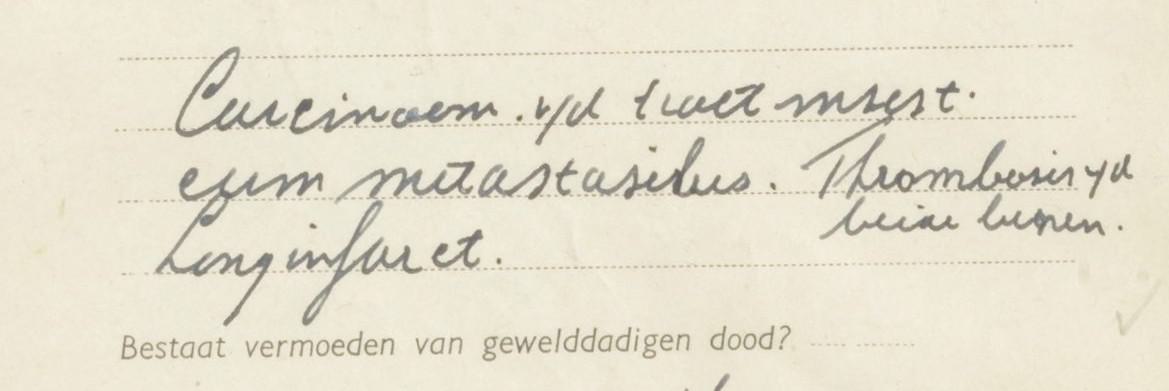 Carcinoem v/d tract. intest.
cum metastasibus. Thrombosis v/d
beide benen.
Longinfarct.
Bestaat vermoeden van gewelddadigen dood?